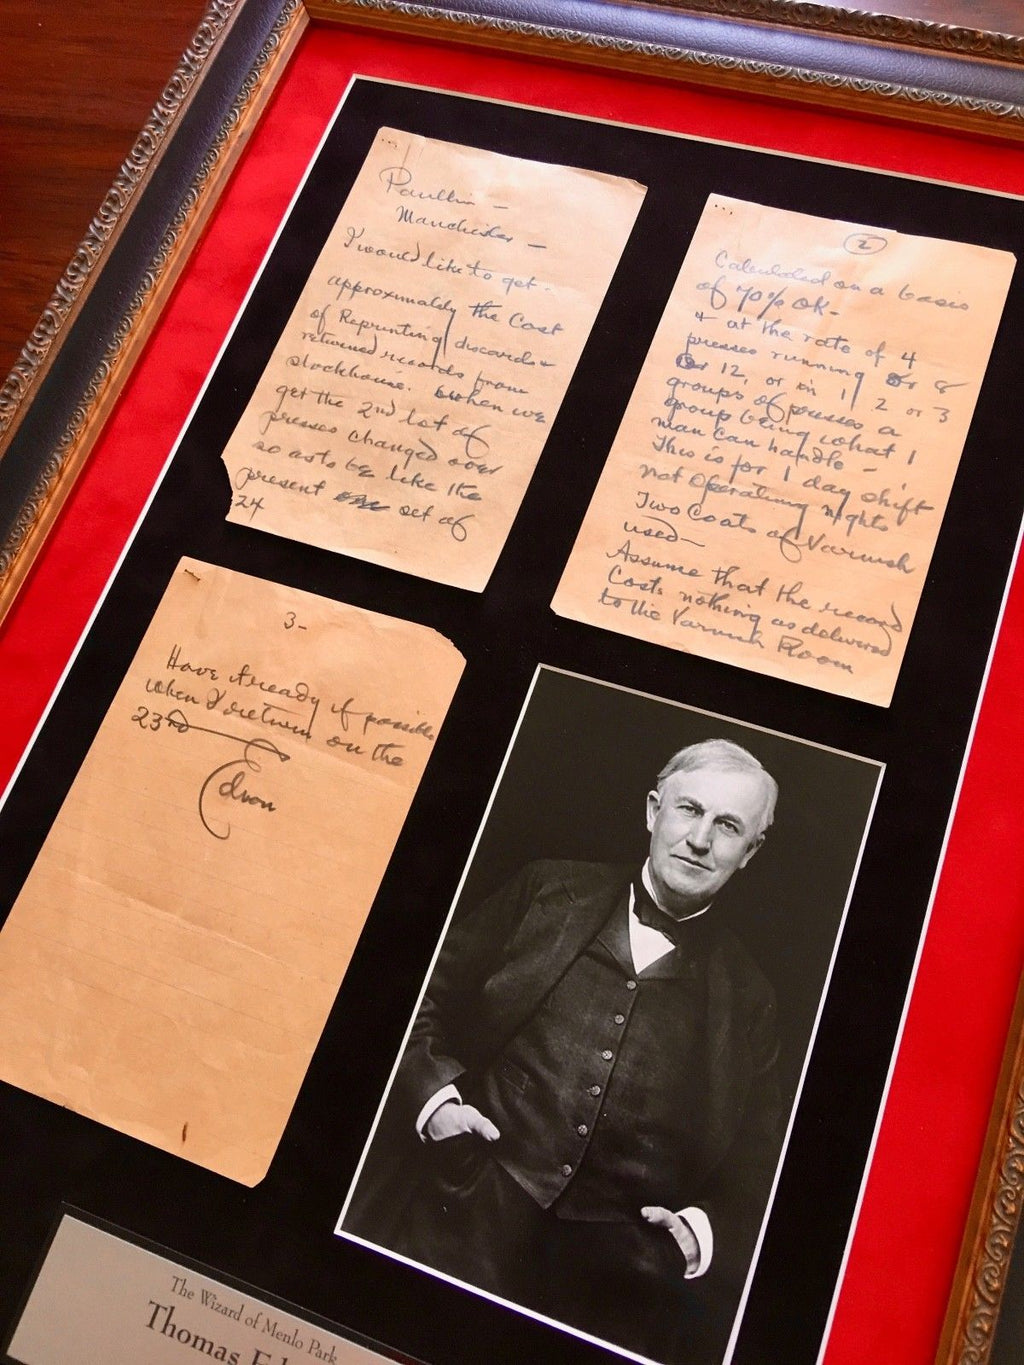 Paullin —
Manchester —
I would like to get
approximately the Cost
of Reprinting discards &
returned records from
stockhouse. when we
get the 2nd lot of
presses changed over
so as to be like the
present set of
24
2
Calculated on a basis
of 70% OK —
+ at the rate of 4
presses running or 8
Or 12, or in 1, 2 or 3
groups of presses a
group being what 1
man can handle —
This is for 1 day shift
not operating nights
Two Coats of Varnish
used —
Assume that the record
Costs nothing as delivered
to the Varnish Room
3-
Have ready if possible
when I return on the
23rd
Edison
The Wizard of Menlo Park
Thomas Ed